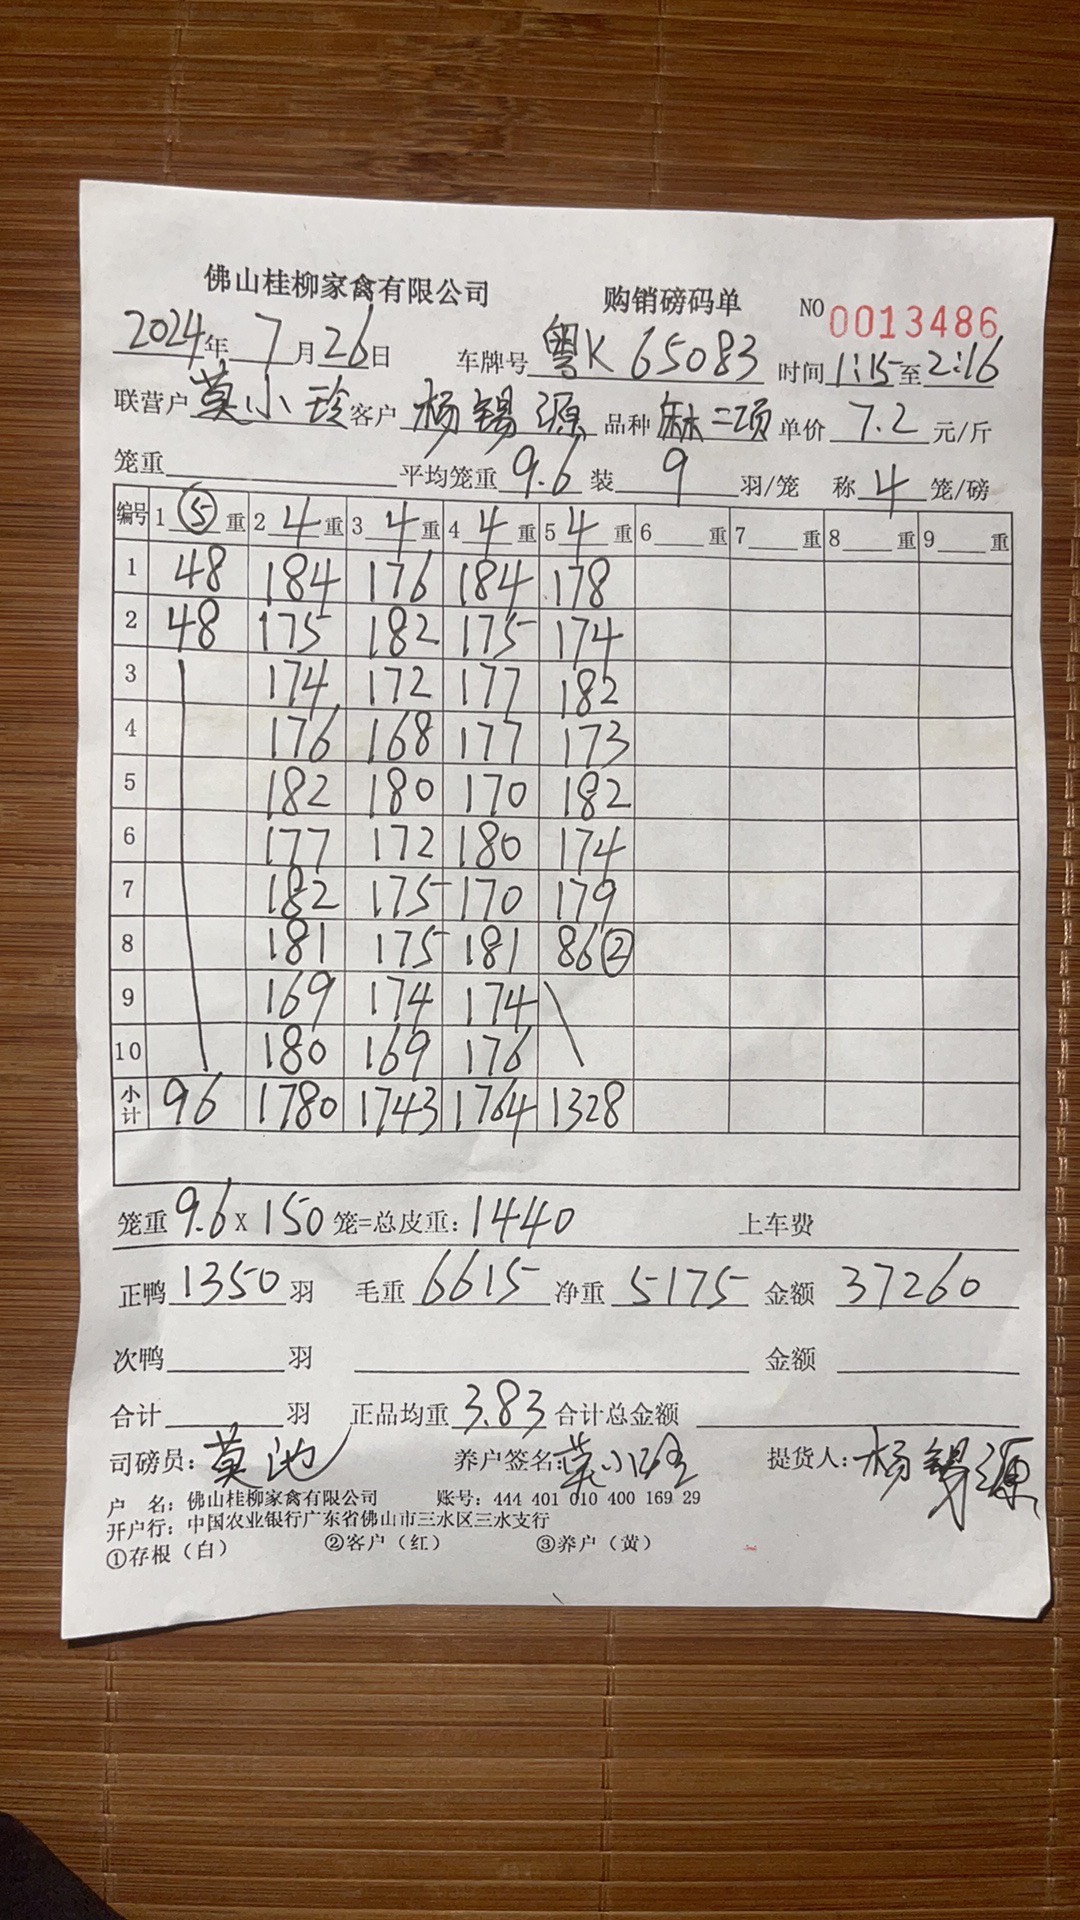 佛山桂柳家禽有限公司 购销磅码单 NO 0013486
2024年 7月26日 车牌号 粤K 65083 时间 1:15至2:16
联营户 莫小玲 客户 杨锡源 品种 麻二项 单价 7.2 元/斤
笼重 平均笼重 9.6 装 9 羽/笼 称 4 笼/磅
编号 1 ⑤ 重 2 4 重 3 4 重 4 4 重 5 4 重 6 重 7 重 8 重 9 重
1 48 184 176 184 178
2 48 175 182 175 174
3 174 172 177 182
4 176 168 177 173
5 182 180 170 182
6 177 172 180 174
7 182 175 170 179
8 181 175 181 86②
9 169 174 174
10 180 169 176
小计 96 1780 1743 1764 1328
笼重 9.6 X 150 笼=总皮重: 1440 上车费
正鸭 1350 羽 毛重 6615 净重 5175 金额 37260
次鸭 羽 金额
合计 羽 正品均重 3.83 合计总金额
司磅员: 莫池 养户签名: 莫小玲 提货人: 杨锡源
户 名: 佛山桂柳家禽有限公司 账号: 444 401 010 400 169 29
开户行: 中国农业银行广东省佛山市三水区三水支行
①存根（白） ②客户（红） ③养户（黄）